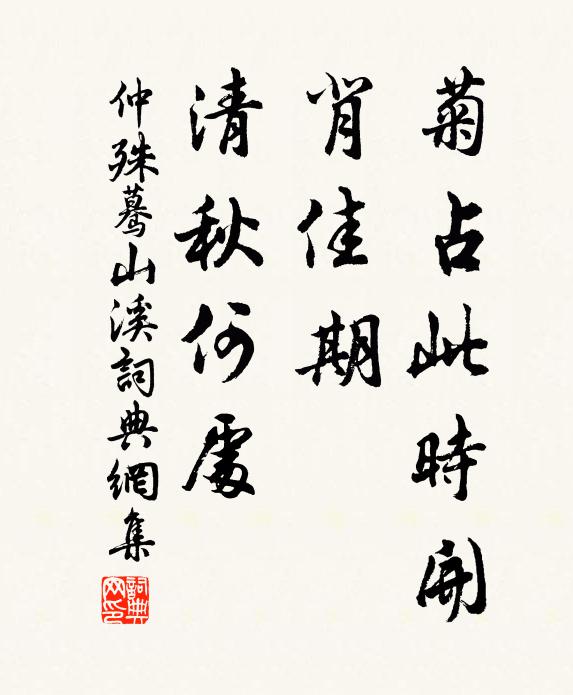 菊占此時開
背佳期
清秋何處
仲殊驀山溪詞典網集
詞典網印